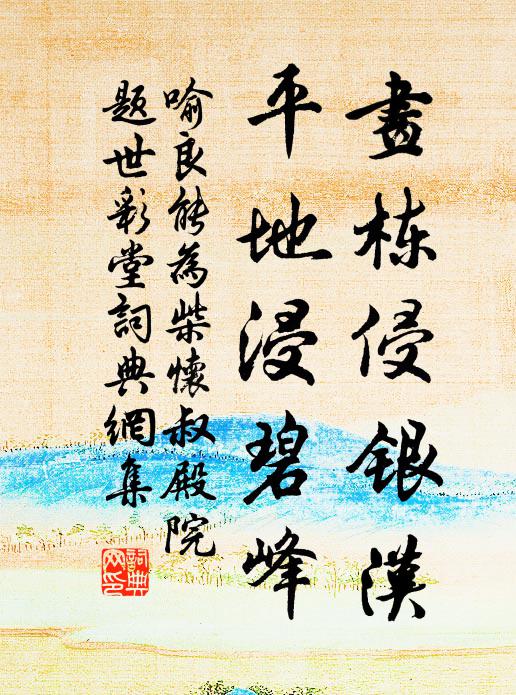 畫栋侵银漢
平地浸碧峰
喻良能為柴懷叔殿院
题世彩堂詞典網集
詞典网印